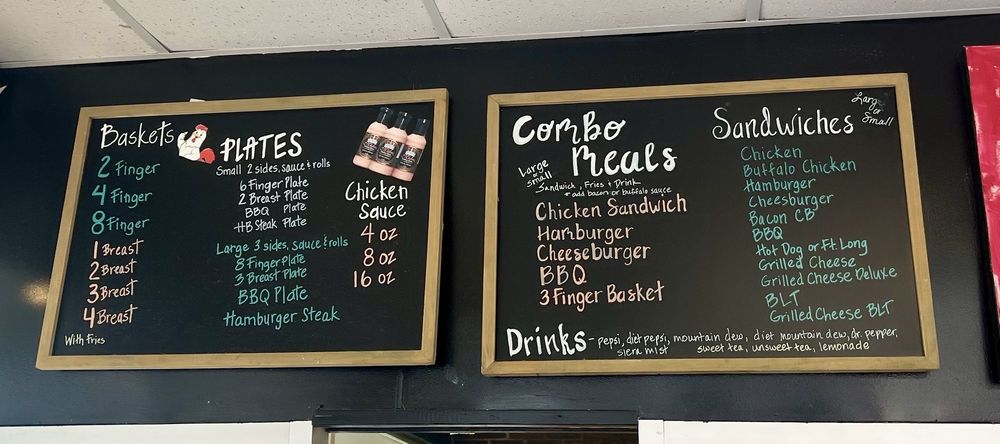 Baskets
2 Finger
4 Finger
8 Finger
1 Breast
2 Breast
3 Breast
4 Breast
With Fries
PLATES
Small 2 sides, sauce & rolls
6 Finger Plate
2 Breast Plate
BBQ Plate
HB Steak Plate
Large 3 sides, sauce & rolls
8 Finger Plate
3 Breast Plate
BBQ Plate
Hamburger Steak
Chicken
Sauce
4 oz
8 oz
16 oz
Combo
Meals
Large
or
small
Sandwich, Fries + Drink
+ add bacon or buffalo sauce
Chicken Sandwich
Hamburger
Cheeseburger
BBQ
3 Finger Basket
Sandwiches
Large
or
Small
Chicken
Buffalo Chicken
Hamburger
Cheesburger
Bacon CB
BBQ
Hot Dog or Ft. Long
Grilled Cheese
Grilled Cheese Deluxe
BLT
Grilled Cheese BLT
Drinks - pepsi, diet pepsi, mountain dew, diet mountain dew, dr. pepper,
siera mist sweet tea, unsweet tea, lemonade